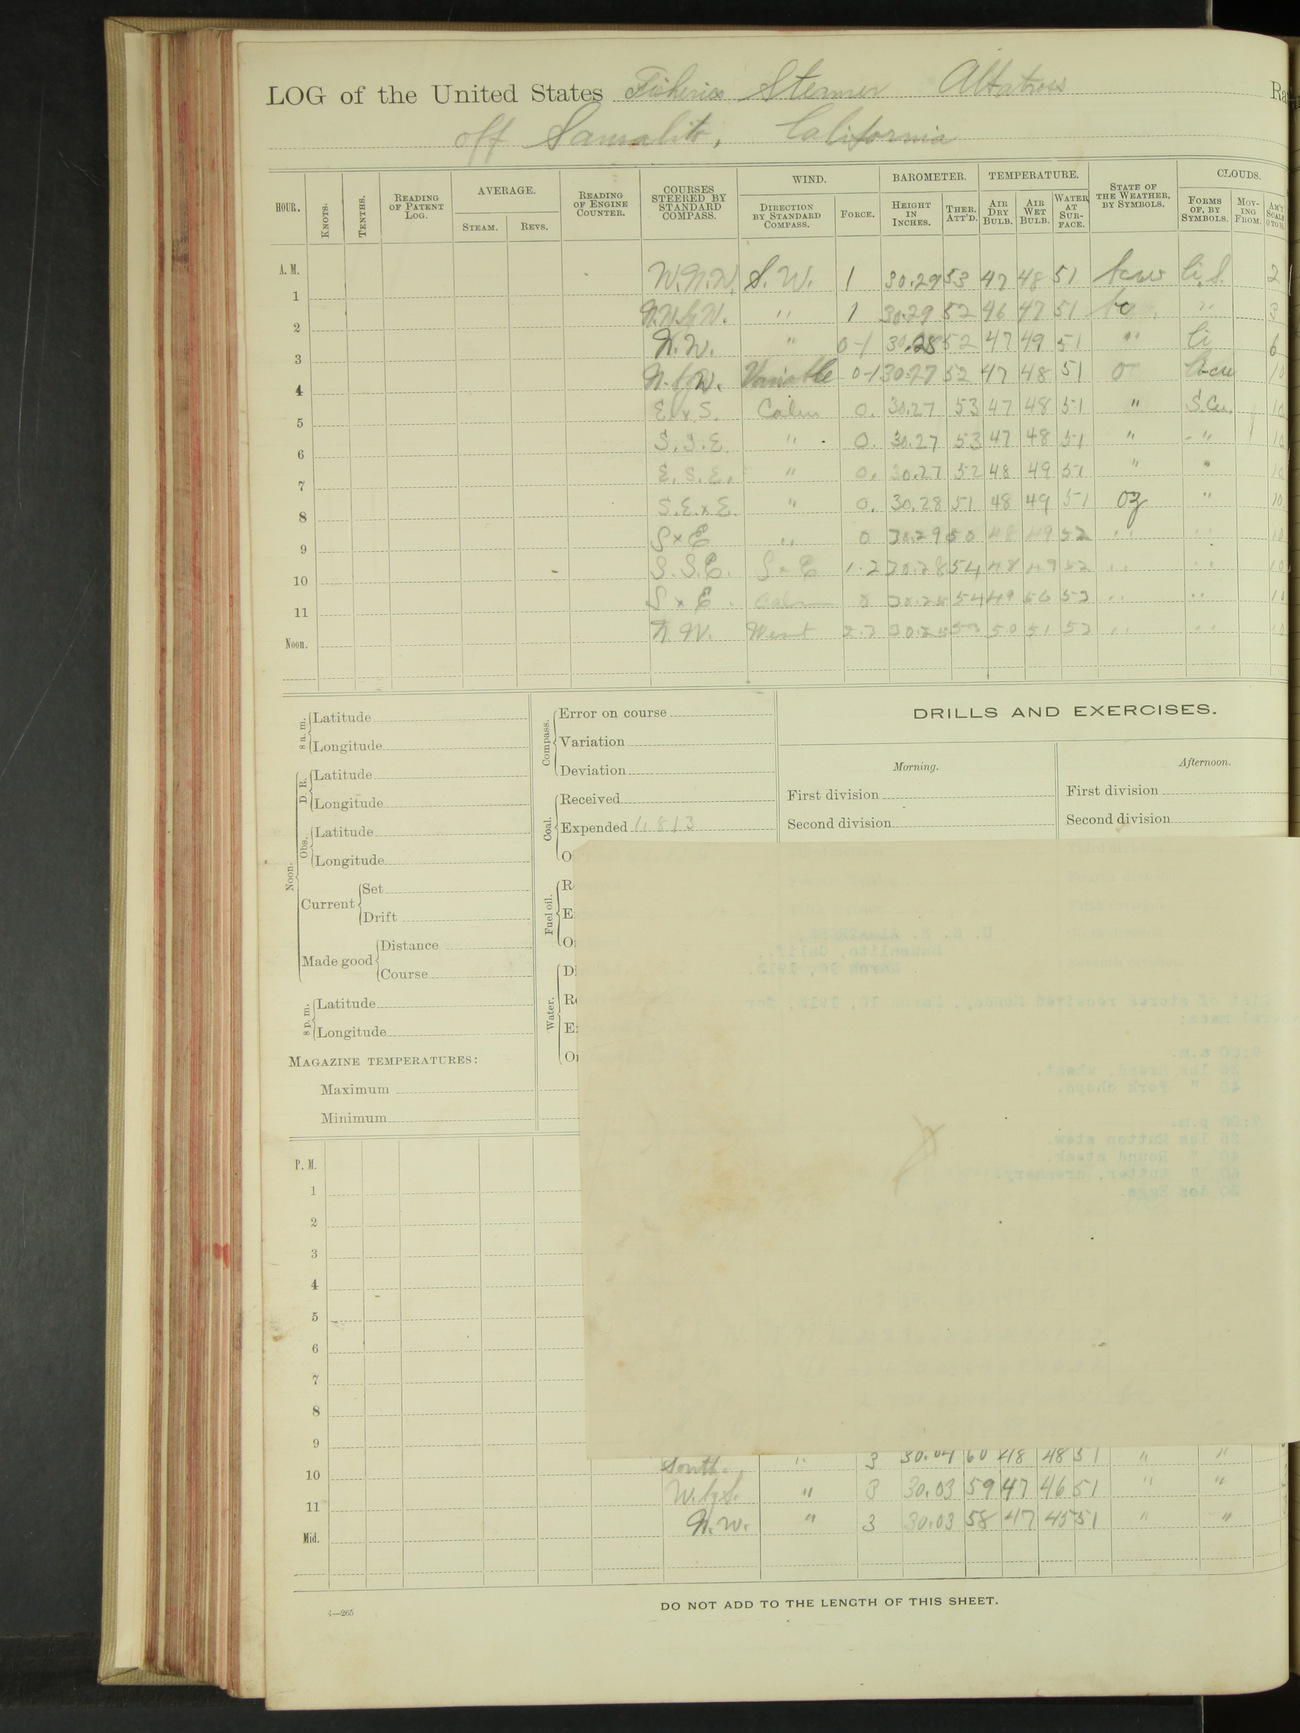 LOG of the United States Fisheries Steamer Albatross Ra
off Sausalito, California
HOUR. KNOTS. TENTHS. READING OF PATENT LOG. AVERAGE. STEAM. REVS. READING OF ENGINE COUNTER. COURSES STEERED BY STANDARD COMPASS. WIND. DIRECTION BY STANDARD COMPASS. FORCE. BAROMETER. HEIGHT IN INCHES. THER. ATT'D. TEMPERATURE. AIR DRY BULB. AIR WET BULB. WATER AT SUR-FACE. STATE OF THE WEATHER, BY SYMBOLS. CLOUDS. FORMS OF, BY SYMBOLS. MOV-ING FROM. AM'T SCALE 0 TO 10.
A. M.
1 W.N.W. S.W. 1 30.29 53 47 48 51 Ci.S. 2
2 N.W.byW. " 1 30.29 52 46 47 51 bc " 3
3 N.W. " 0-1 30.28 52 47 49 51 " Ci 6
4 N.byW. Variable 0-1 30.27 52 47 48 51 o 10
5 E.xS. Calm 0. 30.27 53 47 48 51 " S.Cu. 10
6 S.S.E. " 0. 30.27 53 47 48 51 " " 10
7 E.S.E. " 0. 30.27 52 48 49 51 " " 10
8 S.E.xE. " 0. 30.28 51 48 49 51 oz " 10
9 SxE " 0 30.29 50 48 49 52 " " 10
10 S.S.E. SxE 1-2 30.28 54 48 49 52 " " 10
11 SxE Calm 0 30.28 54 49 50 53 " " 10
Noon. N.W. West 2-3 53 50 51 52 " " 10
8 a. m. Latitude
Longitude
Noon. D. R. Latitude
Longitude
Obs. Latitude
Longitude
Current Set
Drift
Made good Distance
Course
8 p. m. Latitude
Longitude
MAGAZINE TEMPERATURES:
Maximum
Minimum
Compass. Error on course
Variation
Deviation
Coal. Received
Expended 1,813
O
Fuel oil. R
E
O
Water. D
Re
E
O
DRILLS AND EXERCISES.
Morning. Afternoon.
First division First division
Second division Second division
U. S. S. ALBATROSS,
Sausalito, Calif.,
March 30, 1912.
9:00 a.m.
20 lbs Bread, wheat.
40 " Pork chops.
p.m.
lbs Mutton stew.
40 " Round steak.
60 " Butter, creamery.
doz Eggs.
P. M.
1
2
3
4
5
6
7
8
9
10 South. " 3 30.04 60 48 48 51 " "
11 W.byS. " 3 30.03 59 47 46 51 " "
Mid. N.W. " 3 30.03 58 47 45 51 " "
4—265
DO NOT ADD TO THE LENGTH OF THIS SHEET.